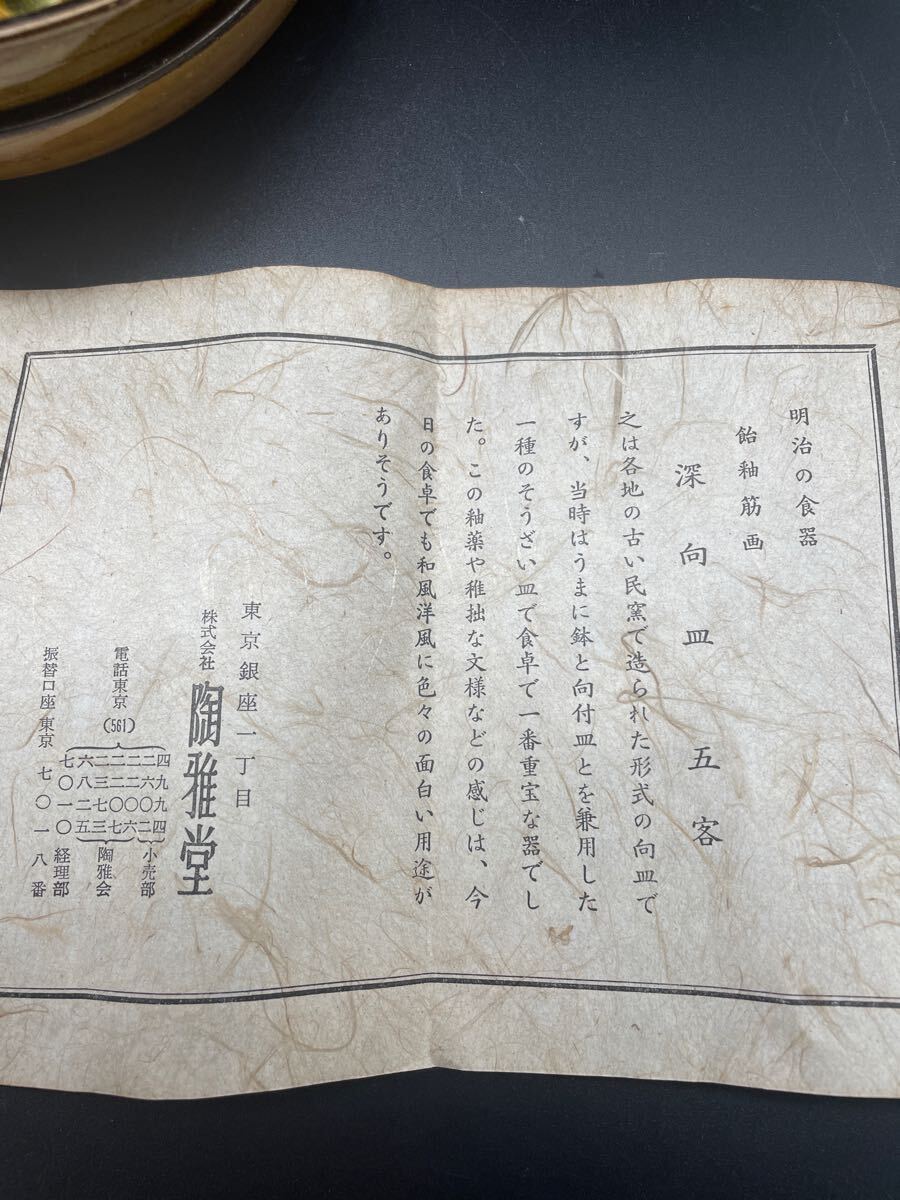 明治の食器
飴釉筋画
深向皿五客
之は各地の古い民窯で造られた形式の向皿で
すが、当時はうまに鉢と向付皿とを兼用した
一種のそうざい皿で食卓で一番重宝な器でし
た。この釉薬や稚拙な文様などの感じは、今
日の食卓でも和風洋風に色々の面白い用途が
ありそうです。
東京銀座一丁目
株式会社 陶雅堂
電話東京(561)
四九九四
二六〇二
小売部
二二〇六
二二〇七
二三七三
陶雅会
六八二五
七〇一〇
経理部
振替口座東京七〇一八番